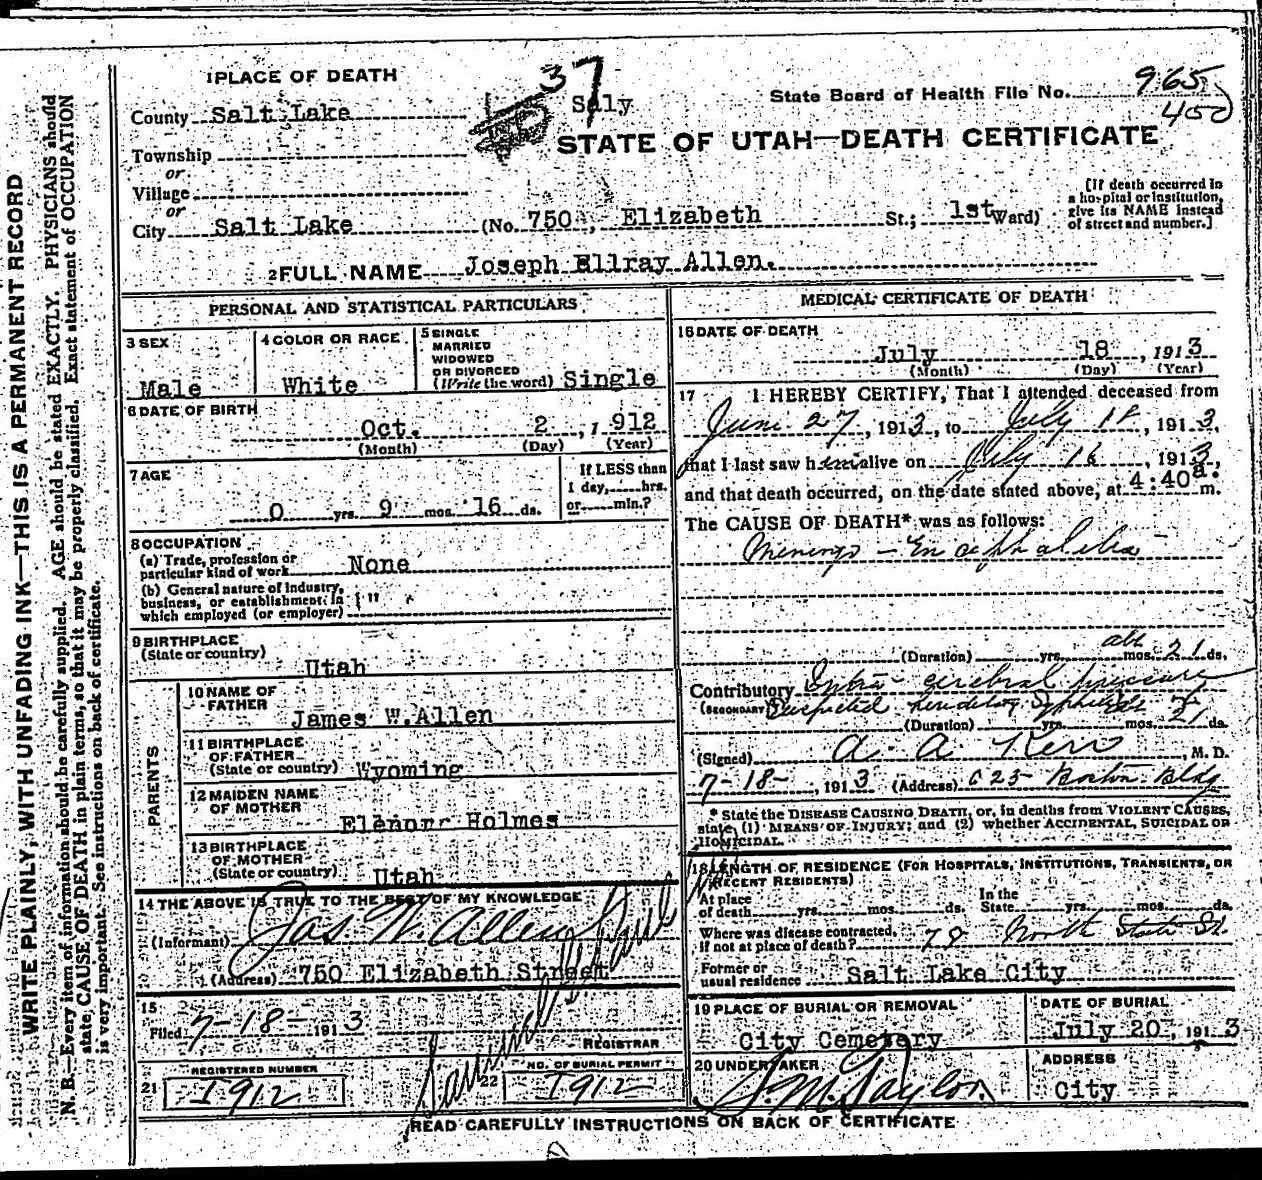 1 PLACE OF DEATH
37
County Salt Lake
Saly
State Board of Health File No. 965
400
STATE OF UTAH—DEATH CERTIFICATE
Township
or
Village
or
City Salt Lake (No. 750, Elizabeth St.; 1st Ward)
[If death occurred in
a hospital or institution,
give its NAME instead
of street and number.]
2 FULL NAME Joseph Ellray Allen.
PERSONAL AND STATISTICAL PARTICULARS
3 SEX
Male
4 COLOR OR RACE
White
5 SINGLE
MARRIED
WIDOWED
OR DIVORCED
(Write the word) Single
6 DATE OF BIRTH
Oct. 2, 1 912
(Month) (Day) (Year)
7 AGE
0 yrs. 9 mos. 16 ds.
If LESS than
1 day,.....hrs.
or.....min.?
8 OCCUPATION
(a) Trade, profession or
particular kind of work None
(b) General nature of industry,
business, or establishment in "
which employed (or employer)
9 BIRTHPLACE
(State or country)
Utah
PARENTS
10 NAME OF
FATHER
James W. Allen
11 BIRTHPLACE
OF FATHER
(State or country) Wyoming
12 MAIDEN NAME
OF MOTHER
Elenorr Holmes
13 BIRTHPLACE
OF MOTHER
(State or country) Utah
14 THE ABOVE IS TRUE TO THE BEST OF MY KNOWLEDGE
(Informant) Jas W. Allen
(Address) 750 Elizabeth Street
15
Filed 7-18- 1913
REGISTRAR
21 REGISTERED NUMBER
1912
22 NO. OF BURIAL PERMIT
1912
MEDICAL CERTIFICATE OF DEATH
16 DATE OF DEATH
July 18, 1913
(Month) (Day) (Year)
17 I HEREBY CERTIFY, That I attended deceased from
June 27, 1913, to July 18, 1913,
that I last saw him alive on July 16, 1913,
and that death occurred, on the date stated above, at 4:40 a. m.
The CAUSE OF DEATH* was as follows:
Meningo-Encephalitis
(Duration) yrs. mos. 21 ds.
Contributory Intra-cerebral pressure
(SECONDARY) Suspected hereditary Syphilis
(Duration) yrs. mos. 21 ds.
(Signed) A. A. Kerr, M. D.
7-18-, 1913 (Address) 625 Boston Bldg
* State the DISEASE CAUSING DEATH, or, in deaths from VIOLENT CAUSES,
state (1) MEANS OF INJURY; and (2) whether ACCIDENTAL, SUICIDAL OR
HOMICIDAL.
18 LENGTH OF RESIDENCE (FOR HOSPITALS, INSTITUTIONS, TRANSIENTS, OR
RECENT RESIDENTS)
At place
of death yrs. mos. ds.
In the
State yrs. mos. ds.
Where was disease contracted,
if not at place of death? 79 North State St.
Former or
usual residence Salt Lake City
19 PLACE OF BURIAL OR REMOVAL
City Cemetery
DATE OF BURIAL
July 20, 1913
20 UNDERTAKER
S. M. Taylor
ADDRESS
City
READ CAREFULLY INSTRUCTIONS ON BACK OF CERTIFICATE
WRITE PLAINLY, WITH UNFADING INK—THIS IS A PERMANENT RECORD
N. B.—Every item of information should be carefully supplied. AGE should be stated EXACTLY. PHYSICIANS should
state CAUSE OF DEATH in plain terms, so that it may be properly classified. Exact statement of OCCUPATION
is very important. See instructions on back of certificate.